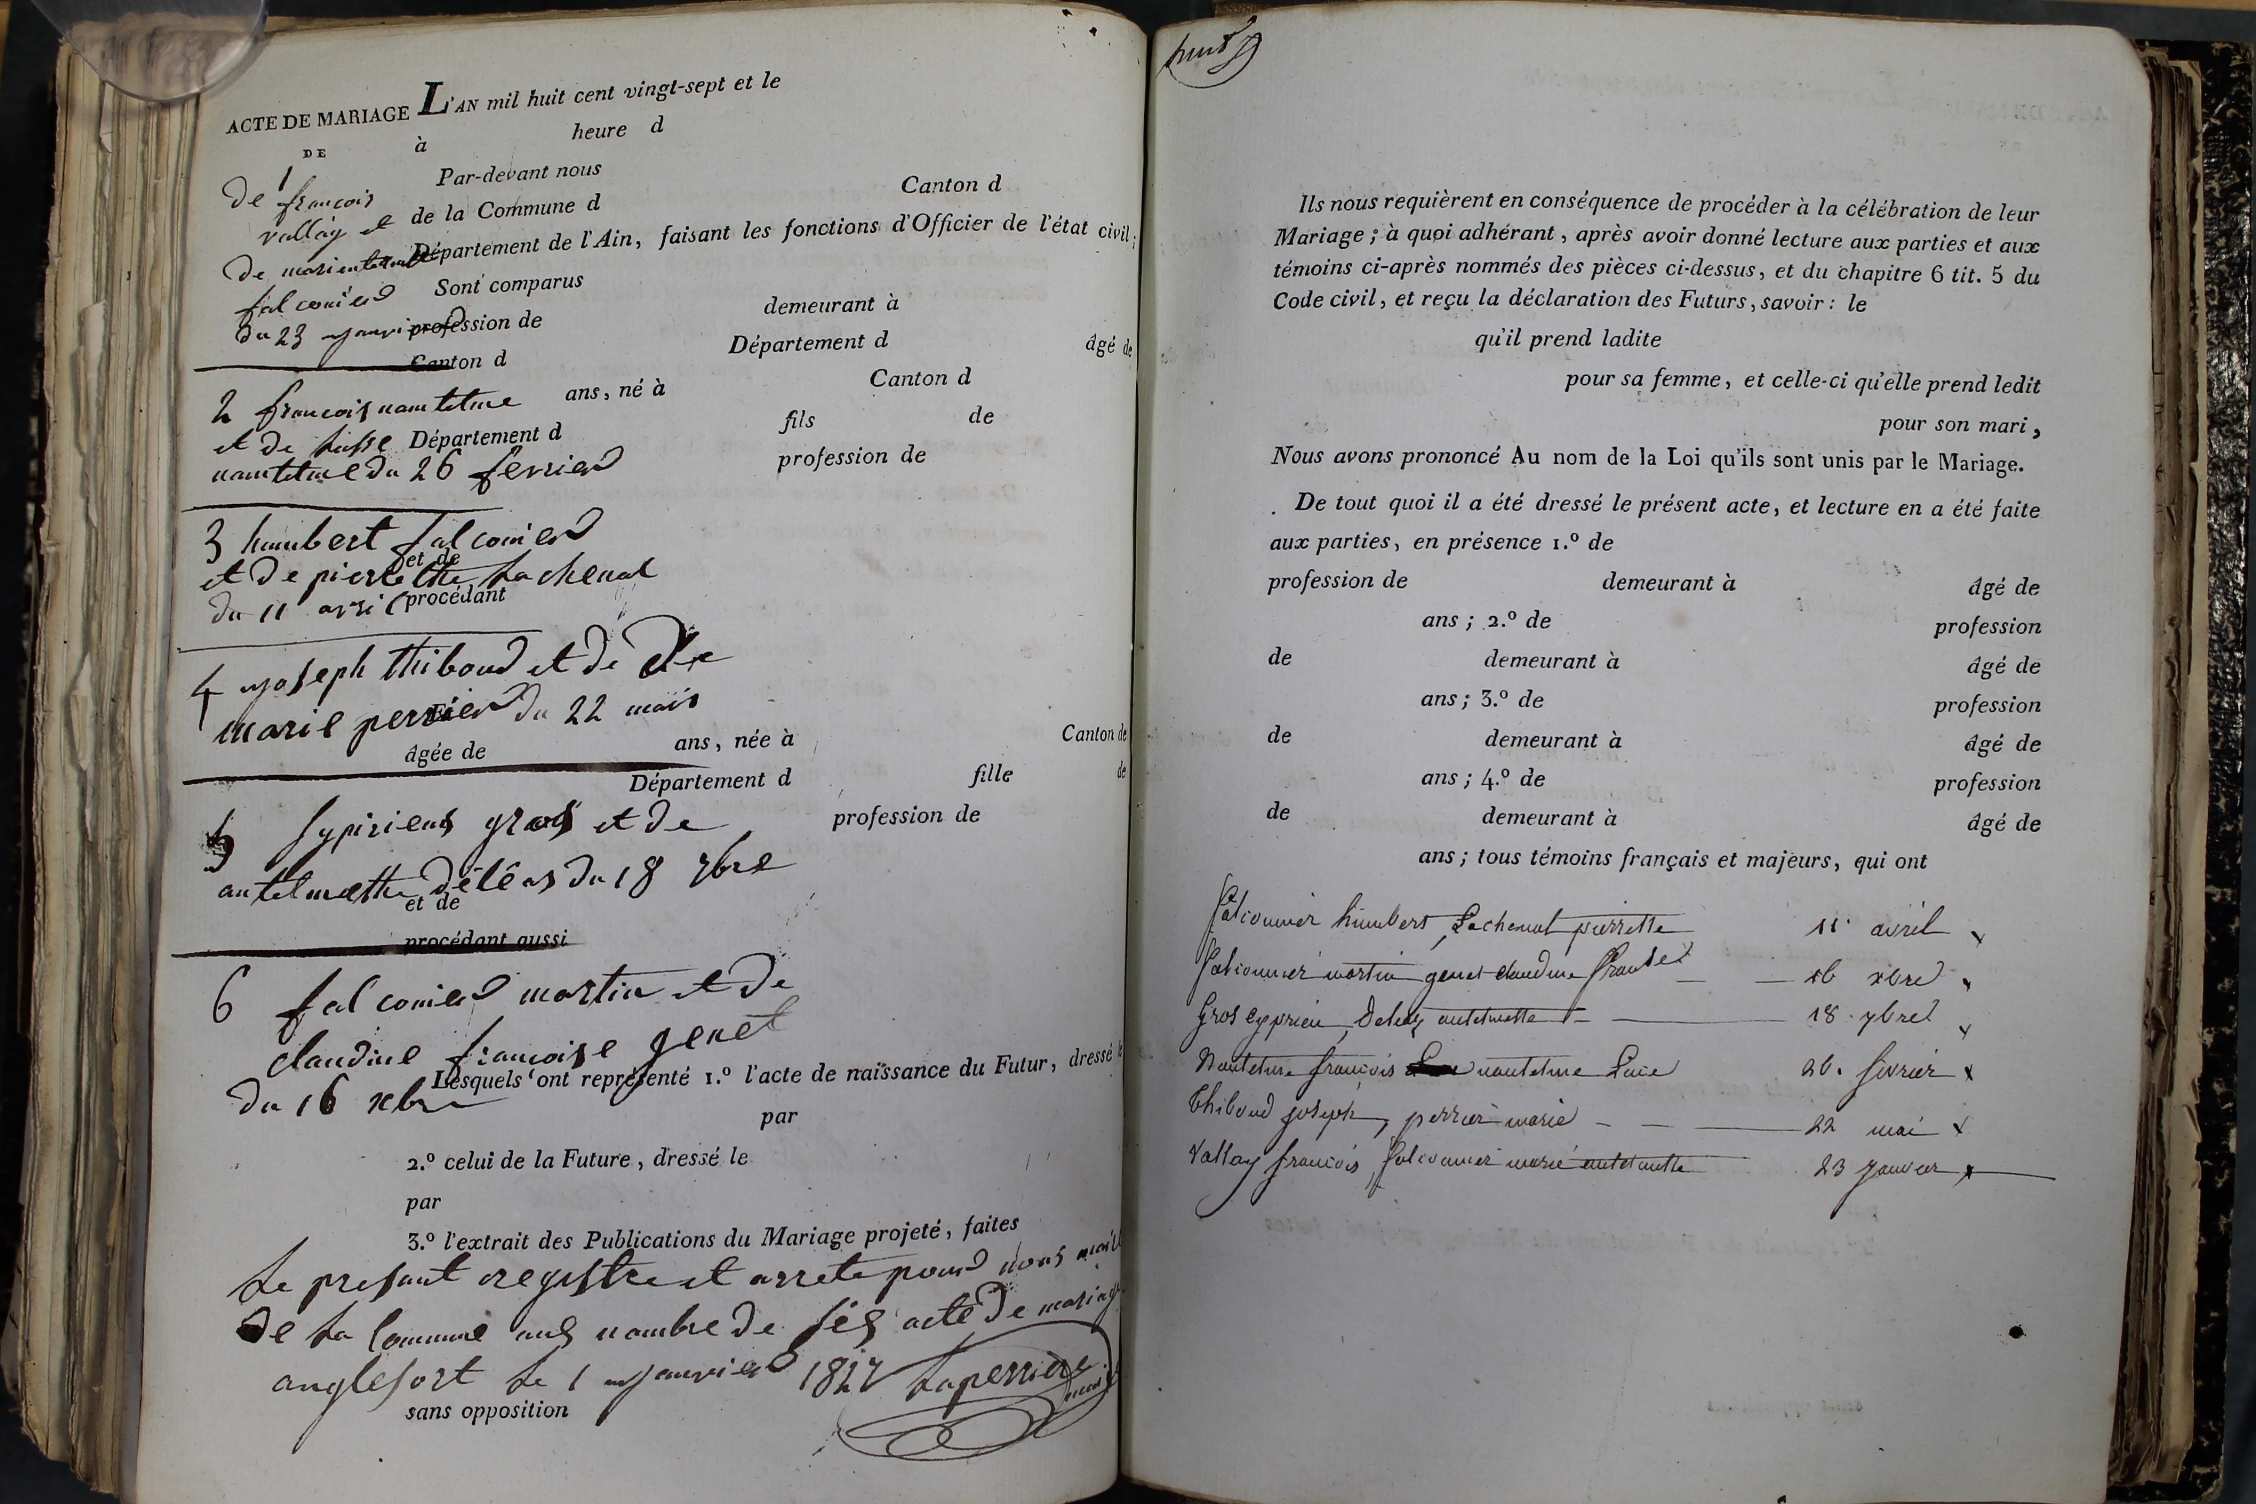 ACTE DE MARIAGE L'AN mil huit cent vingt-sept et le
DE à heure d
1 Par-devant nous
De françois Canton d
vallay et de la Commune d
Département de l'Ain, faisant les fonctions d'Officier de l'état civil;
De marie
falconier Sont comparus
demeurant à
du 23 janvier profession de
Canton d Département d âgé de
2 francois nantelme ans, né à Canton d
et de lusse Département d fils de
nantelme du 26 fevrier profession de
3 humbert falconier
et de
et de pierrette Lachenal
du 11 avril procédant
4 joseph thiboud et de
Et
marie perrier du 22 mais
âgée de ans, née à Canton de
Département d fille de
5 sypirien gros et de profession de
antelmette déléas du 18 7bre
et de
procédant aussi
6 falconier martin et de
claudine francoise genet
Lesquels ont représenté 1.º l'acte de naissance du Futur, dressé le
du 16 xbre
par
2.º celui de la Future, dressé le
par
3.º l'extrait des Publications du Mariage projeté, faites
Le presant registre et arrete pour nous maire
de la Commune aus nombre de sés acte de mariage
anglefort le 1 janvier 1827 Laperrière
maire
sans opposition
Ils nous requièrent en conséquence de procéder à la célébration de leur
Mariage; à quoi adhérant, après avoir donné lecture aux parties et aux
témoins ci-après nommés des pièces ci-dessus, et du chapitre 6 tit. 5 du
Code civil, et reçu la déclaration des Futurs, savoir: le
qu'il prend ladite
pour sa femme, et celle-ci qu'elle prend ledit
pour son mari,
Nous avons prononcé Au nom de la Loi qu'ils sont unis par le Mariage.
De tout quoi il a été dressé le présent acte, et lecture en a été faite
aux parties, en présence 1.º de
profession de demeurant à âgé de
ans; 2.º de profession
de demeurant à âgé de
ans; 3.º de profession
de demeurant à âgé de
ans; 4.º de profession
de demeurant à âgé de
ans; tous témoins français et majeurs, qui ont
falconnier humbert, Lachenal pierrette 11 avril x
falconnier martin genet claudine franse 16 xbre x
Gros cyprien, Deleas antelmette 18 7bre x
Nantelme francois nantelme Luce 26. février x
thiboud joseph, perrier marie 22 mai x
Vallay francois, falconnier marie antelmette 23 janvier x